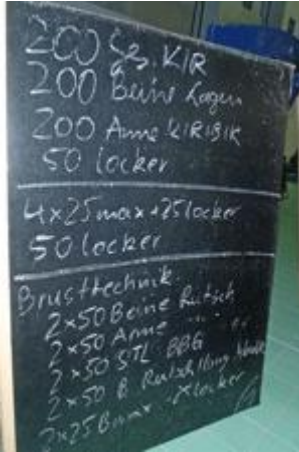 200 Gs. K/R
200 Beine Lagen
200 Arme K/R/B/K
50 locker
4x25max+25locker
50 locker
Brusttechnik
2x50 Beine Rutsch
2x50 Arme " "
2x50 STL BBG
2x50 B. Rutsch
2x25 Bmax locker